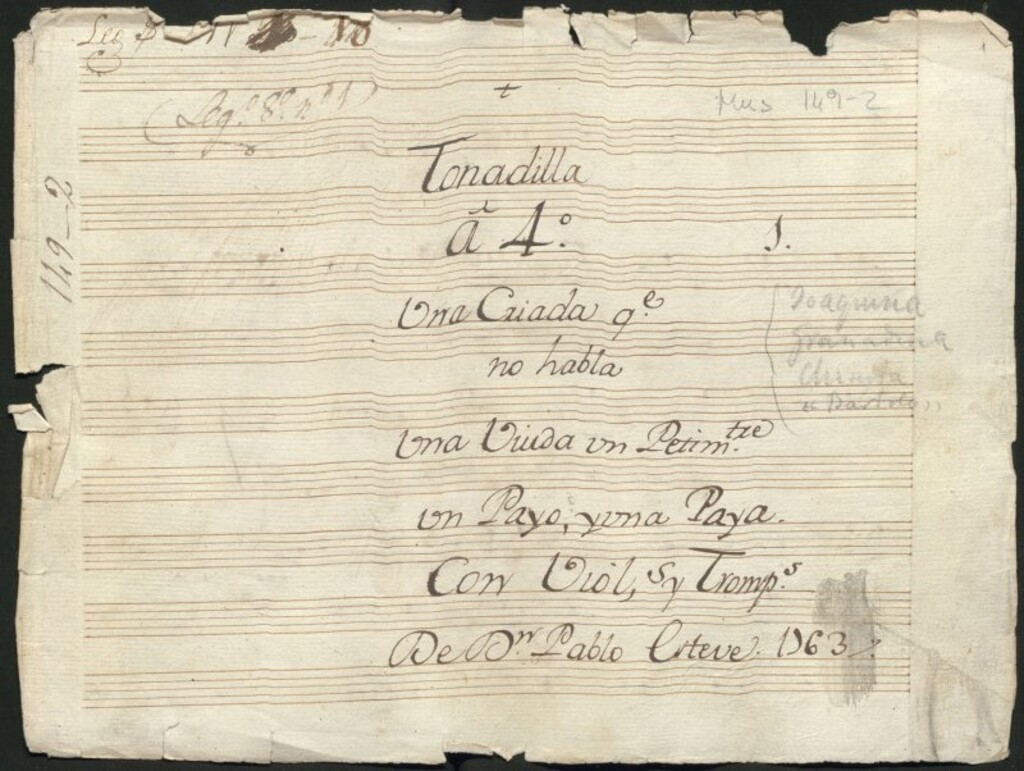 Leg
(Leg.º 8º nº 1)
+
Mus 149-2
149-2
Tonadilla
â 4.º
1.
Una Criada q.e
no habla
Joaquina
Granadina
Chinita
Una Viuda vn Petim.tre
vn Payo, y vna Paya.
Con Viol,s y Tromp.s
De D.n Pablo Esteve. 1763